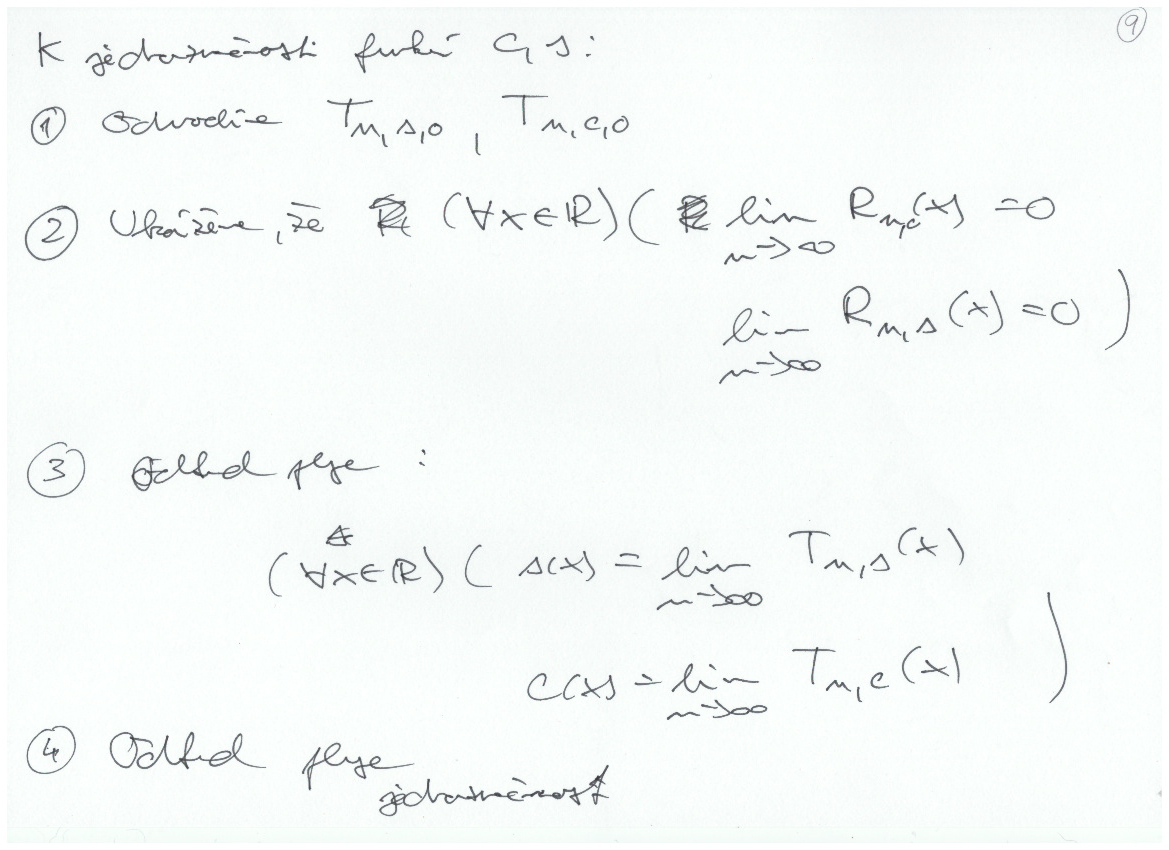 9
K jednoznačnosti funkcí c, s:
① Odvodíme T_{n,s,0}, T_{n,c,0}
② Ukážeme, že (∀x∈ℝ)( lim_{n→∞} R_{n,c}(x) = 0
lim_{n→∞} R_{n,s}(x) = 0 )
③ Odtud plyne :
(∀x∈ℝ)( s(x) = lim_{n→∞} T_{n,s}(x)
c(x) = lim_{n→∞} T_{n,c}(x) )
④ Odtud plyne
jednoznačnost